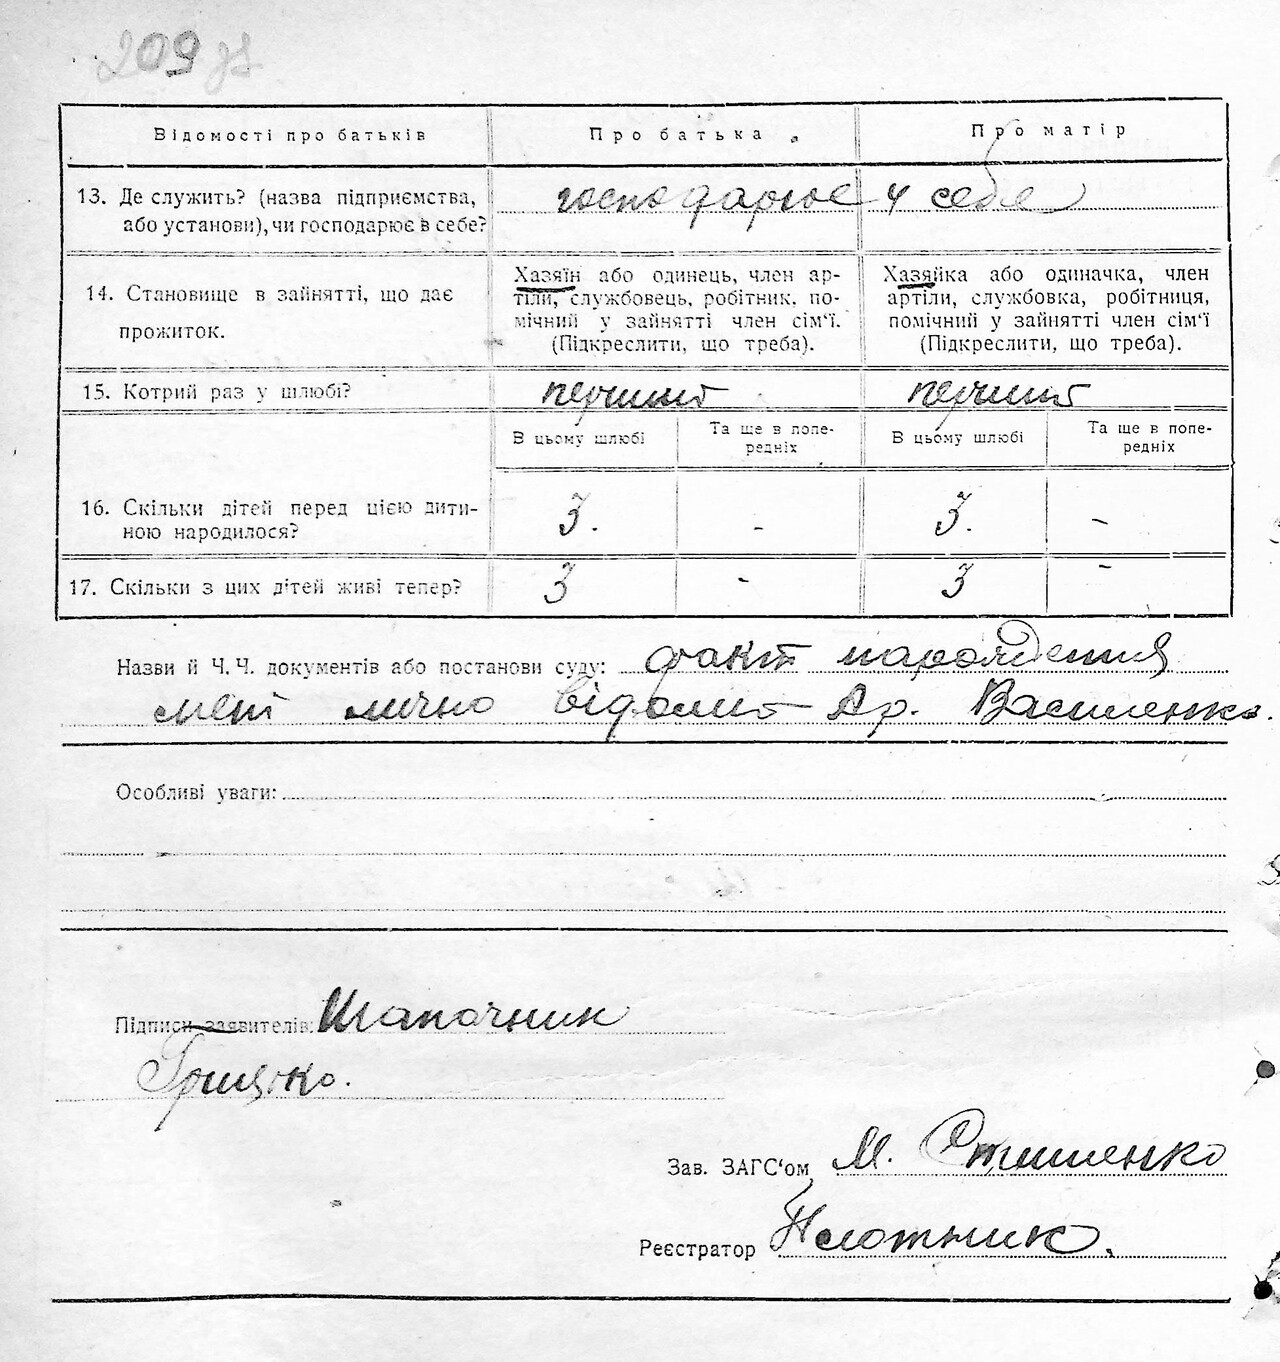 209
Відомості про батьків
Про батька
Про матір
13. Де служить? (назва підприємства,
або установи), чи господарює в себе?
господарює у себе
14. Становище в зайнятті, що дає
прожиток.
Хазяїн або одинець, член ар-
тіли, службовець, робітник, по-
мічний у зайнятті член сім'ї.
(Підкреслити, що треба).
Хазяйка або одиначка, член
артіли, службовка, робітниця,
помічний у зайнятті член сім'ї
(Підкреслити, що треба).
15. Котрий раз у шлюбі?
перший
перший
В цьому шлюбі
Та ще в попе-
редніх
В цьому шлюбі
Та ще в попе-
редніх
16. Скільки дітей перед цією дити-
ною народилося?
3. - 3. -
17. Скільки з цих дітей живі тепер?
3 - 3 -
Назви й Ч.Ч. документів або постанови суду: факт народження
мені лично відомий Др. Василенко.
Особливі уваги:
Підписи заявителів: Шапочник
Грицько.
Зав. ЗАГС'ом М. Стишенко
Реєстратор Плотник.